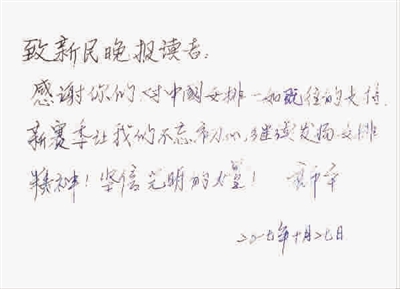 致新民晚报读者:
感谢你们对中国女排一如既往的支持.
新赛季让我们不忘初心,继续发扬女排
精神!坚信光明的
2017年十月27日